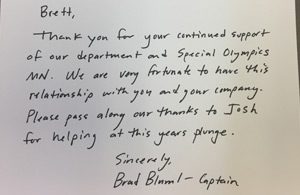 Brett,
Thank you for your continued support
of our department and Special Olympics
MN. We are very fortunate to have this
relationship with you and your company.
Please pass along our thanks to Josh
for helping at this years plunge.
Sincerely,
Brad Bluml - Captain